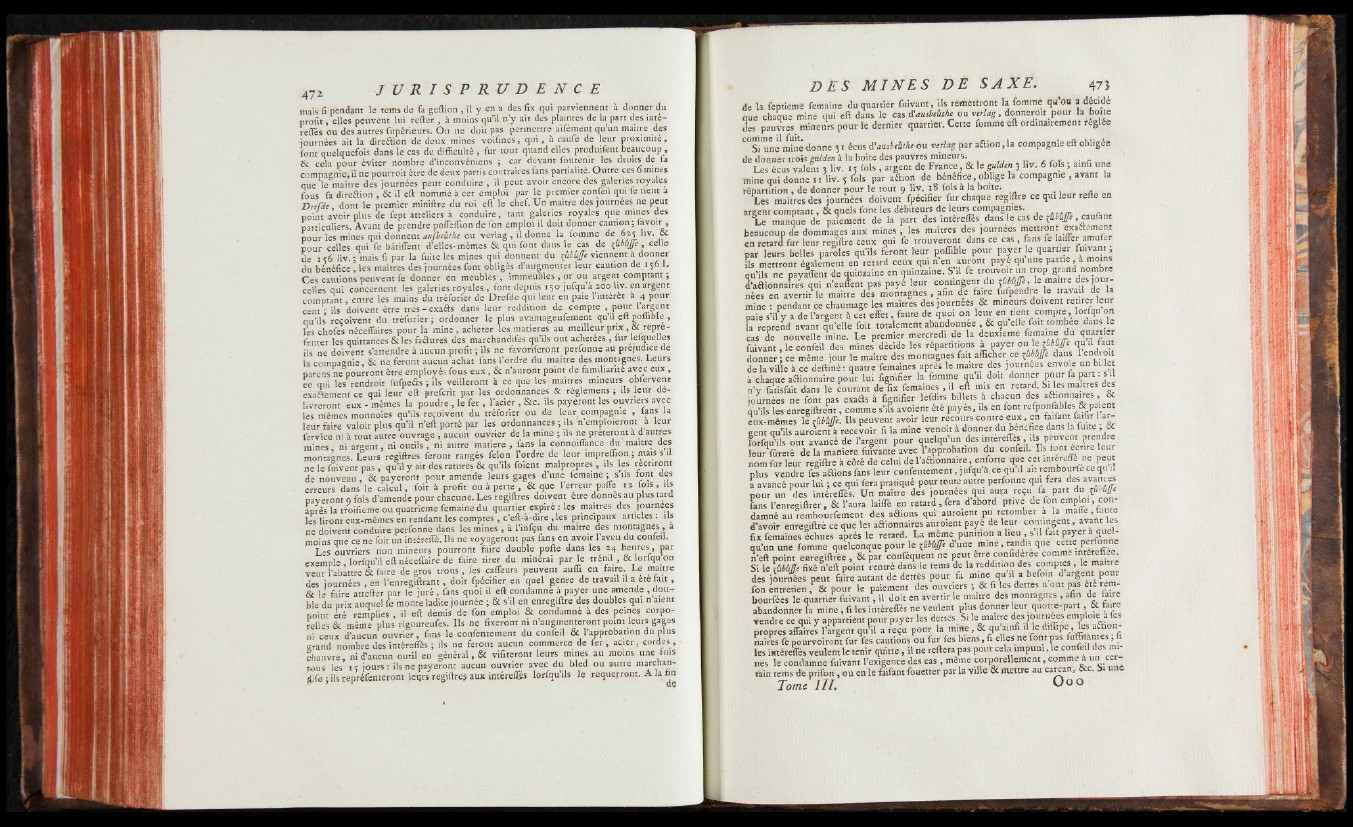 472 JURISPRUDENCE
mais ſi pendant le tems de ſa geſtion, il y en a des ſix qui parviennent à donner du
profit, elles peuvent lui reſter, à moins qu'il n'y ait des plaintes de la part des inté-
reſſés ou des autres ſupérieurs. On ne doit pas permettre aiſément qu'un maître des
journées ait la direction de deux mines voiſines, qui, à cauſe de leur proximité,
ſont quelquefois dans le cas de difficulté, ſur tout quand elles produiſent beaucoup,
& cela pour éviter nombre d'inconvéniens ; car devant ſoutenir les droits de ſa
compagnie, il ne pourroit être de deux partis contraires ſans partialité. Outre ces 6 mines
que le maître des journées peut conduire, il peut avoir encore des galeries royales
ſous ſa direction, & il eſt nommé à cet emploi par le premier conſeil qui ſe tient à
Dreſde, dont le premier miniſtre du roi eſt le chef. Un maître des journées ne peut
point avoir plus de ſept atteliers à conduire, tant galeries royales que mines des
particuliers. Avant de prendre poſſeſſion de ſon emploi il doit donner caution ; ſavoir,
pour les mines qui donnent ausbeuthe ou verlag, il donne la ſomme de 625 liv. &
pour celles qui ſe bâtiſſent d'elles-mêmes & qui ſont dans le cas de zûbûſſe, celle
de 156 liv. ; mais ſi par la ſuite les mines qui donnent du zûbûſſe viennent à donner
du bénéfice, les maîtres des journées ſont obligés d'augmenter leur caution de 156 l.
Ces cautions peuvent ſe donner en meubles, immeubles, or ou argent comptant ;
celles qui concernent les galeries royales, ſont depuis 150 juſqu'à 200 liv. en argent
comptant, entre les mains du tréſorier de Dreſde qui leur en paie l'intérêt à 4 pour
cent ; ils doivent être très-exacts dans leur reddition de compte, pour l'argent
qu'ils reçoivent du tréſorier ; ordonner le plus avantageuſement qu'il eſt poſſible,
les choſes néceſſaires pour la mine, acheter les matieres au meilleur prix, & repré-
ſenter les quittances & les factures des marchandiſes qu'ils ont achetées, ſur leſquelles
ils ne doivent s'attendre à aucun profit ; ils ne favoriſeront perſonne au préjudice de
la compagnie, & ne feront aucun achat ſans l'ordre du maître des montagnes. Leurs
parens ne pourront être employés ſous eux, & n'auront point de familiarité avec eux,
ce qui les rendroit ſuſpects ; ils veilleront à ce que les maîtres mineurs obſervent
exactement ce qui leur eſt preſcrit par les ordonnances & réglemens ; ils leur dé-
livreront eux-mêmes la poudre, le fer, l'acier, &c. ils payeront les ouvriers avec
les mêmes monnoies qu'ils reçoivent du tréſorier ou de leur compagnie, ſans la
leur faire valoir plus qu'il n'eſt porté par les ordonnances ; ils n'emploieront à leur
ſervice ni à tout autre ouvrage, aucun ouvrier de la mine ; ils ne prêteront à d'autres
mines, ni argent, ni outils, ni autre matiere, ſans la connoiſſance du maître des
montagnes. Leurs regiſtres ſeront rangés ſelon l'ordre de leur impreſſion ; mais s'il
ne le ſuivent pas, qu'il y ait des ratures & qu'ils ſoient malpropres, ils les récriront
de nouveau, & payeront pour amende leurs gages d'une ſemaine ; s'ils font des
erreurs dans le calcul, ſoit à profit ou à perte, & que l'erreur paſſe 12 ſols, ils
payeront 9 ſols d'amende pour chacune. Les regiſtres doivent être donnés au plus tard
après la troiſieme ou quatrieme ſemaine du quartier expiré : les maîtres des journées
les liront eux-mêmes en rendant les comptes, c'eſt-à-dire, les principaux articles : ils
ne doivent conduire perſonne dans les mines, à l'inſçu du maître des montagnes, à
moins que ce ne ſoit un intéreſſé. Ils ne voyageront pas ſans en avoir l'aveu du conſeil.
Les ouvriers non mineurs pourront faire double poſte dans les 24 heures, par
exemple, lorſqu'il eſt néceſſaire de faire tirer du minérai par le trénil, & lorſqu'on
veut l'abattre & faire de gros trous, les caſſeurs peuvent auſſi en faire. Le maître
des journées, en l'enregiſtrant, doit ſpécifier en quel genre de travail il a été fait,
& le faire atteſter par le juré, ſans quoi il eſt condamné à payer une amende, dou-
ble du prix auquel ſe monte ladite journée ; & s'il en enregiſtre des doubles qui n'aient
point été remplies, il eſt démis de ſon emploi & condamné à des peines corpo-
relles & même plus rigoureuſes. Ils ne fixeront ni n'augmenteront point leurs gages
ni ceux d'aucun ouvrier, ſans le conſentement du conſeil & l'approbation du plus
grand nombre des intéreſſés ; ils ne feront aucun commerce de fer, acier, cordes,
chanvre, ni d'aucun outil en général, & viſiteront leurs mines au moins une fois
tous les 15 jours : ils ne payeront aucun ouvrier avec du bled ou autre marchan-
diſe ; ils repréſenteront leurs regiſtres aux intéreſſés lorſqu'ils le requerront. A la fin
de
DES MINES DE SAXE. 473
de la ſeptieme ſemaine du quartier ſuivant, ils remettront la ſomme qu'on a décidé
que chaque mine qui eſt dans le cas d'ausbeuthe ou verlag, donneroit pour la boîte
des pauvres mineurs pour le dernier quartier. Cette ſomme eſt ordinairement réglée
comme il ſuit.
Si une mine donne 31 écus d'ausbeuthe ou verlag par action, la compagnie eſt obligée
de donner trois gulden à la boîte des pauvres mineurs.
Les écus valent 3 liv. 15 ſols, argent de France, & le gulden 3 liv. 6 ſols ; ainſi une
mine qui donne 11 liv. 5 ſols par action de bénéfice, oblige la compagnie, avant la
répartition, de donner pour le tout 9 liv. 18 ſols à la boîte.
Les maîtres des journées doivent ſpécifier ſur chaque regiſtre ce qui leur reſte en
argent comptant, & quels ſont les débiteurs de leurs compagnies.
Le manque de paiement de la part des intéreſſés dans le cas de zûbûſſe, cauſant
beaucoup de dommages aux mines, les maîtres des journées mettront exactement
en retard ſur leur regiſtre ceux qui ſe trouveront dans ce cas, ſans ſe laiſſer amuſer
par leurs belles paroles qu'ils feront leur poſſible pour payer le quartier ſuivant ;
ils mettront également en retard ceux qui n'en auront payé qu'une partie, à moins
qu'ils ne payaſſent de quinzaine en quinzaine. S'il ſe trouvoit un trop grand nombre
d'actionnaires qui n'euſſent pas payé leur contingent du zûbûſſe, le maître des jour-
nées en avertit le maître des montagnes, afin de faire ſuſpendre le travail de la
mine : pendant ce chaumage les maîtres des journées & mineurs doivent retirer leur
paie s'il y a de l'argent à cet effet, faute de quoi on leur en tient compte, lorſqu'on
la reprend avant qu'elle ſoit totalement abandonnée, & qu'elle ſoit tombée dans le
cas de nouvelle mine. Le premier mercredi de la deuxieme ſemaine du quartier
ſuivant, le conſeil des mines décide les répartitions à payer ou le zûbûſſe qu'il faut
donner ; ce même jour le maître des montagnes fait afficher ce zûbûſſe dans l'endroit
de la ville à ce deſtiné : quatre ſemaines après le maître des journées envoie un billet
à chaque actionnaire pour lui ſignifier la ſomme qu'il doit donner pour ſa part : s'il
n'y ſatisfait dans le courant de ſix ſemaines, il eſt mis en retard. Si les maîtres des
journées ne ſont pas exacts à ſignifier leſdits billets à chacun des actionnaires, &
qu'ils les enregiſtrent, comme s'ils avoient été payés, ils en ſont reſponſables & paient
eux-mêmes le zûbûſſe. Ils peuvent avoir leur recours contre eux, en faiſant ſaiſir l'ar-
gent qu'ils auroient à recevoir ſi la mine venoit à donner du bénéfice dans la ſuite ; &
lorſqu'ils ont avancé de l'argent pour quelqu'un des intéreſſés, ils peuvent prendre
leur ſûreté de la maniere ſuivante avec l'approbation du conſeil. Ils font écrire leur
nom ſur leur regiſtre à côté de celui de l'actionnaire, enſorte que cet intéreſſé ne peut
plus vendre ſes actions ſans leur conſentement, juſqu'à ce qu'il ait rembourſé ce qu'il
a avancé pour lui ; ce qui ſera pratiqué pour toute autre perſonne qui fera des avances
pour un des intéreſſés. Un maître des journées qui aura reçu ſa part du zûbûſſe
ſans l'enregiſtrer, & l'aura laiſſé en retard, ſera d'abord privé de ſon emploi, con-
damné au rembourſement des actions qui auroient pu retomber à la maſſe, faute
d'avoir enregiſtré ce que les actionnaires auroient payé de leur contingent, avant les
ſix ſemaines échues après le retard. La même punition a lieu, s'il fait payer à quel-
qu'un une ſomme quelconque pour le zûbûſſe d'une mine, tandis que cette perſonne
n'eſt point enregiſtrée, & par conſéquent ne peut être conſidérée comme intéreſſée.
Si le zûbûſſe fixé n'eſt point rentré dans le tems de la reddition des comptes, le maître
des journées peut faire autant de dettes pour ſa mine qu'il a beſoin d'argent pour
ſon entretien, & pour le paiement des ouvriers ; & ſi les dettes n'ont pas été rem-
bourſées le quartier ſuivant, il doit en avertir le maître des montagnes, afin de faire
abandonner ſa mine, ſi les intéreſſés ne veulent plus donner leur quotte-part, & faire
vendre ce qui y appartient pour payer les dettes. Si le maître des journées emploie à ſes
propres affaires l'argent qu'il a reçu pour la mine, & qu'ainſi il le diſſipe, les action-
naires ſe pourvoiront ſur ſes cautions ou ſur ſes biens, ſi elles ne ſont pas ſuffiſantes ; ſi
les intéreſſés veulent le tenir quitte, il ne reſtera pas pour cela impuni, le conſeil des mi-
nes le condamne ſuivant l'exigence des cas, même corporellement, comme à un cer-
tain tems de priſon, ou en le faiſant fouetter par la ville & mettre au carcan, &c. Si une
Tome III. Ooo